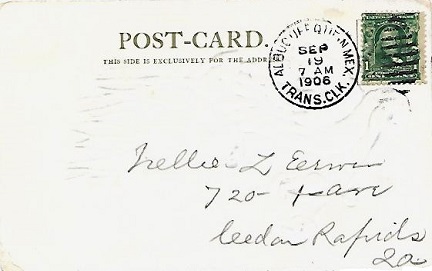 POST-CARD.
THIS SIDE IS EXCLUSIVELY FOR THE ADDRE
ALBUQUERQUE N.MEX.
SEP
19
7 AM
1906
TRANS.CLK.
1
Nellie L
720 Ave
Cedar Rapids
Ia